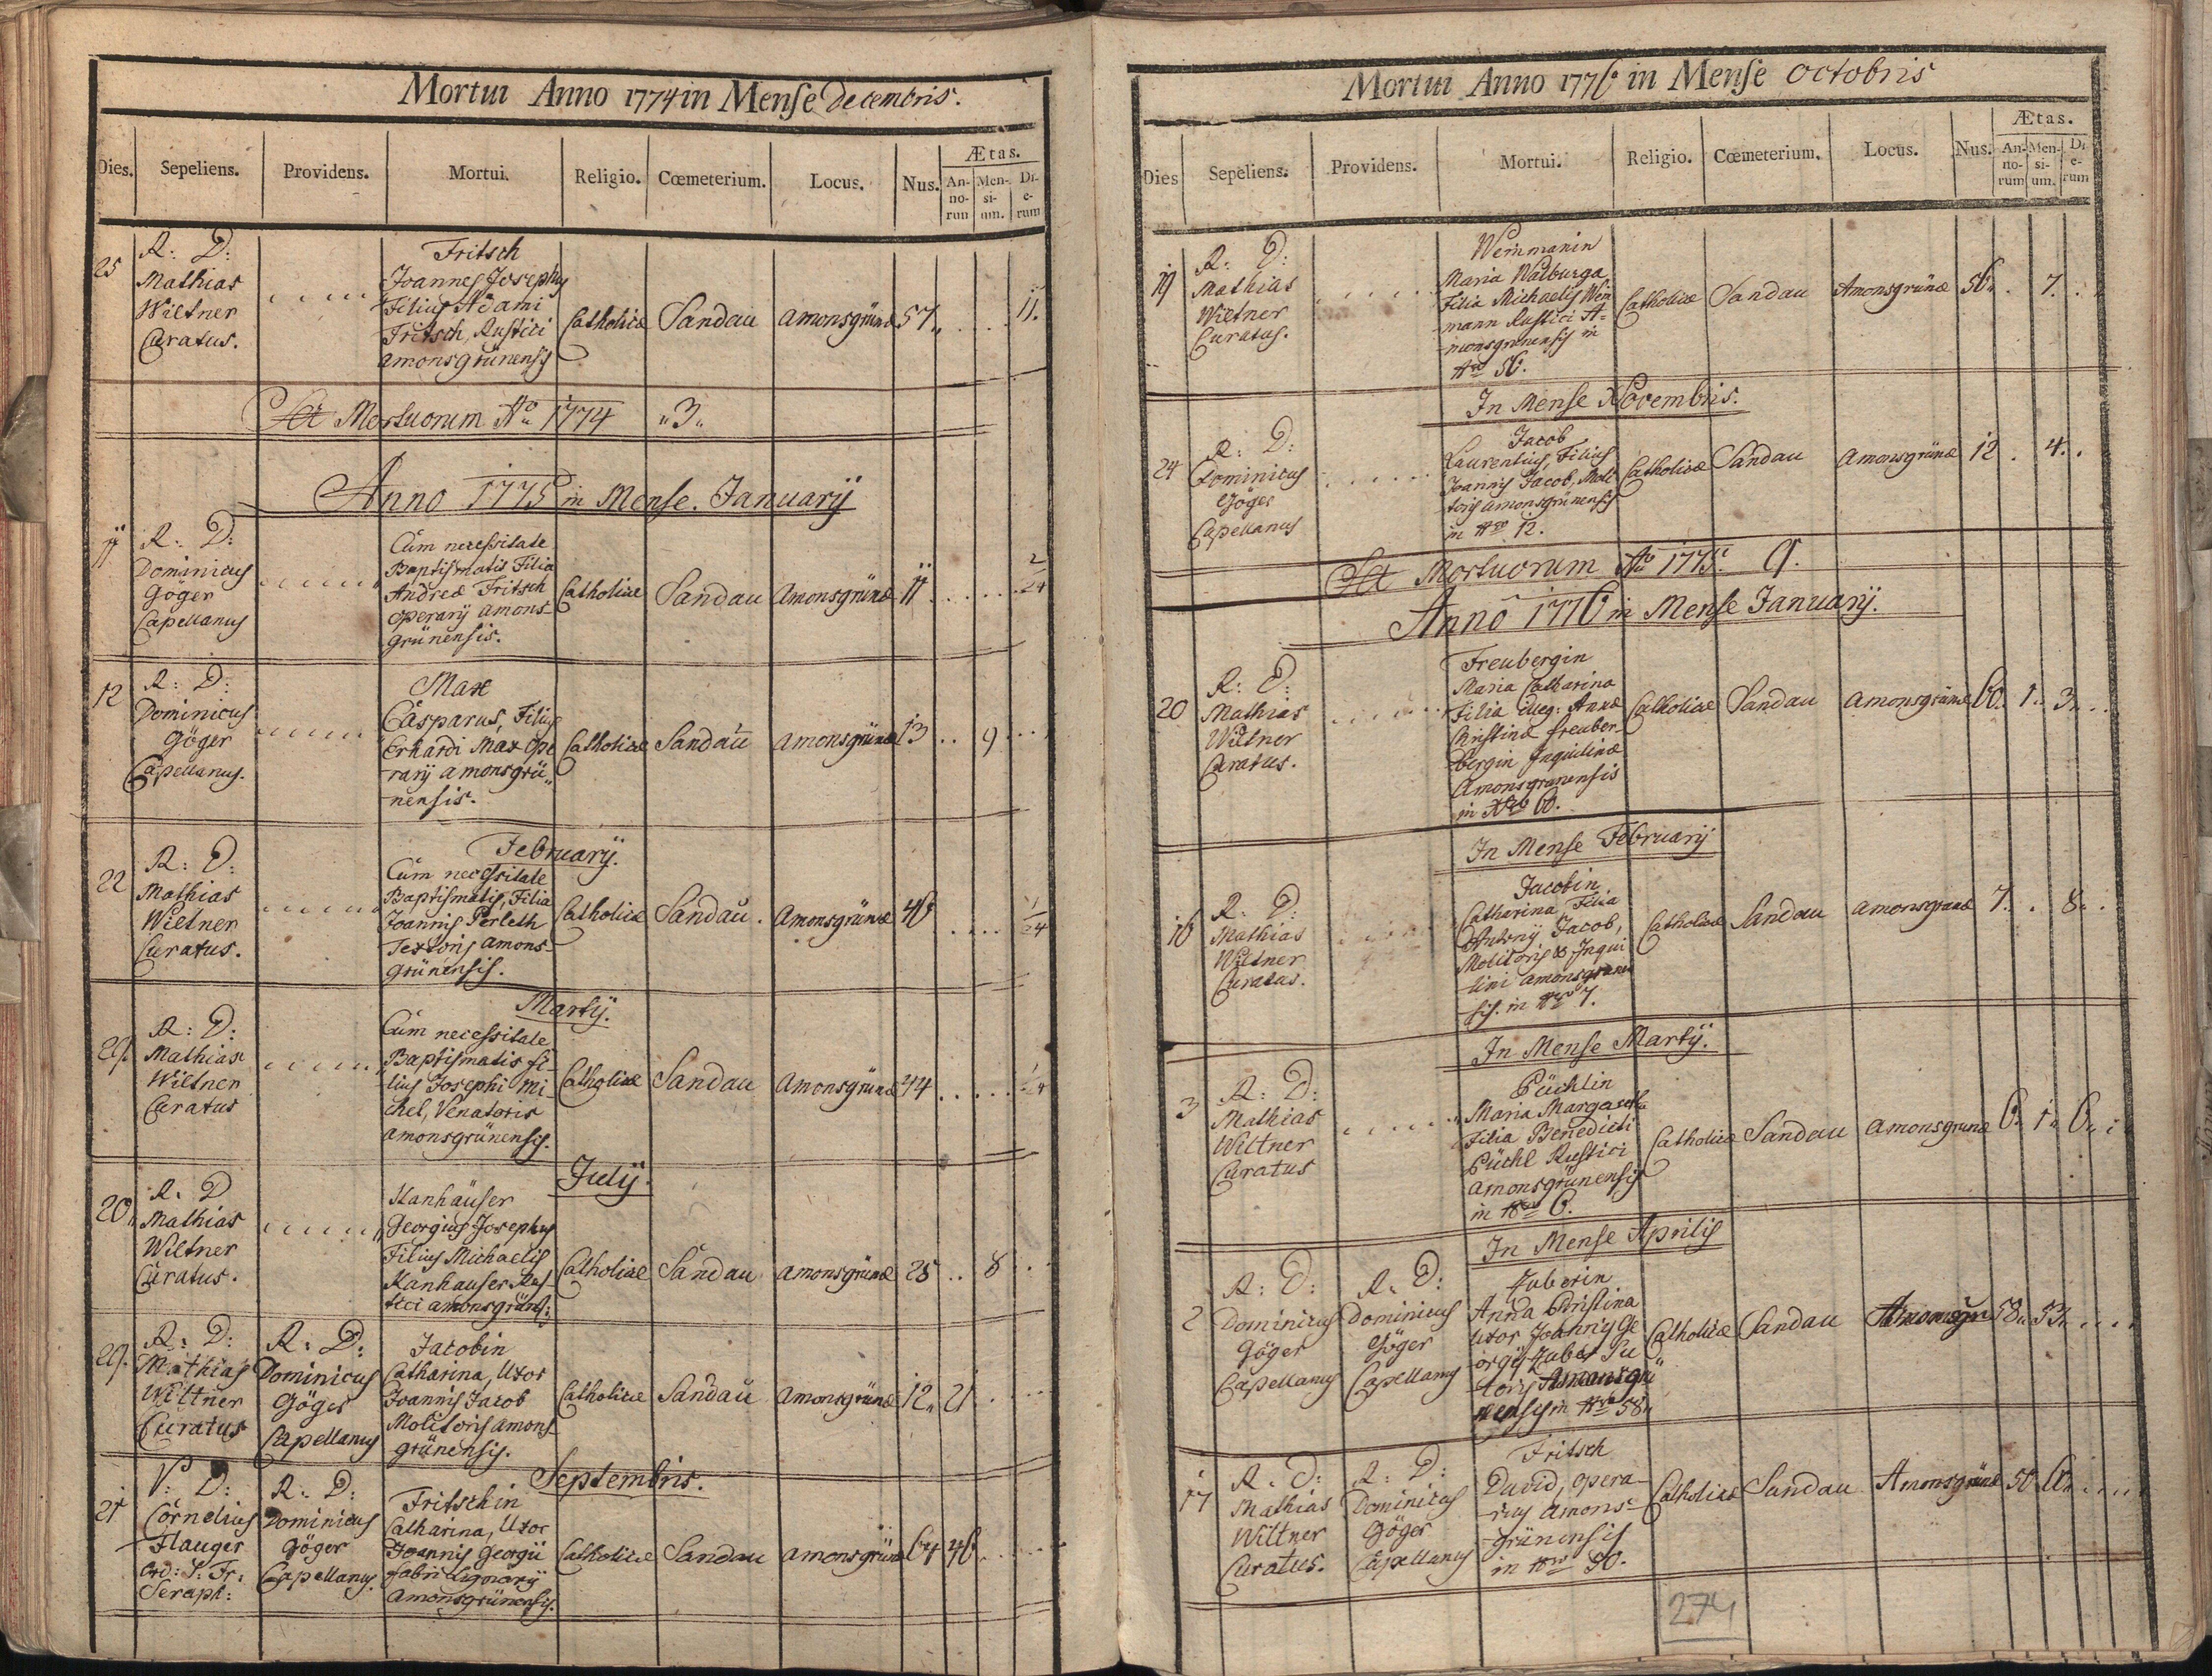 Mortui Anno 1774 in Mense decembris.
Dies. Sepeliens. Providens. Mortui. Religio. Cœmeterium. Locus. Nus. Ætas.
An-no-rum Men-si-um. Di-e-rum
25 R: D: Mathias Wiltner Curatus.
Fritsch
Joannes Josephus
Filius Adami
Fritsch, Rustici
amonsgrünensis
Catholicæ Sandau amonsgrünæ 57 11.
Mortuorum Aō 1774 "3"
Anno 1775 in Mense Januarij
11 R: D: Dominicus Göger Capellanus
Cum necessitate
Baptismatis Filia
Andreæ Fritsch
operarij amons-
grünensis.
Catholicæ Sandau Amonsgrünæ 11 2/24
12 R: D: Dominicus Göger Capellanus.
Max
Casparus, Filius
Erhardi Max ope
-rarij amonsgrü-
nensis.
Catholicæ Sandau amonsgrünæ 13 9
Februarij.
22 R: D: Mathias Wiltner Curatus.
Cum necessitate
Baptismatis, Filia
Joannis Perleth
Textoris amons-
grünensis.
Catholicæ Sandau. Amonsgrünæ 46 1/24
Martij.
29. R: D: Mathias Wiltner Curatus
Cum necessitate
Baptismatis fi-
lius Josephi Mi-
chel, Venatoris
amonsgrünensis.
Catholicæ Sandau Amonsgrünæ 44 1/24
Julij.
20 R. D Mathias Wiltner Curatus.
Hanhäuser
Georgius Josephus
Filius Michaelis
Hanhauser Rus
tici amonsgrüns:
Catholicæ Sandau amonsgrünæ 25 8
29. R: D: Mathias Wiltner Curatus
R: D: Dominicus Göger Capellanus
Jacobin
Catharina, Uxor
Joannis Jacob
Molitoris amons-
grünensis.
Catholicæ Sandau amonsgrünæ 12 21
Septembris.
21 V: D: Cornelius Flauger ord: S: Fr: Seraph:
R: D: Dominicus Göger Capellanus.
Fritschin
Catharina, Uxor
Joannis Georgii
fabri Lignarij
Amonsgrünensis.
Catholicæ Sandau amonsgrünæ 64 46
Mortui Anno 1775 in Mense octobris
Dies Sepeliens. Providens. Mortui. Religio. Cœmeterium. Locus. Nus. Ætas.
An-no-rum Men-si-um. Di-e-rum
19 R: D: Mathias Wiltner Curatus.
Weinmanin
Maria Walburga
Filia Michaelis Wein
mann Rustici A-
monsgrünensis in
Nro 56.
Catholicæ Sandau Amonsgrünæ 56 7.
In Mense Novembris.
24 R: D: Dominicus Göger Capellanus
Jacob
Laurentius, Filius
Joannis Jacob, Moli
toris amonsgrünensis
in Nro 12.
Catholicæ Sandau amonsgrünæ 12 4.
Mortuorum Aō 1775. 9.
Anno 1776 in Mense Januarij.
20 R: D: Mathias Wiltner Curatus.
Freubergin
Maria Catharina
Filia illeg: Annæ
Christinæ freuber-
bergin Inquilinæ
Amonsgrünensis
in Nro 60.
Catholicæ Sandau amonsgrünæ 60. 1. 3
In Mense Februarij
16 R: D: Mathias Wiltner Curatus.
Jacobin
Catharina Filia
Antonij Jacob,
Molitoris & Inqui
lini amonsgrünen
sis. in Nro 7.
Catholicæ Sandau amonsgrünæ 7. 8
In Mense Martij.
3 R: D: Mathias Wiltner Curatus
Püchlin
Maria Margaretha
Filia Benedicti
Püchl Rustici
amonsgrünensis
in Nro 6.
Catholicæ Sandau amonsgrünæ 6 1 6 1
In Mense Aprilis
2 R: D: Dominicus Göger Capellanus
R: D: Dominicus Göger Capellanus
Huberin
Anna Christina
Uxor Joannis Ge
orgij Huber Su
toris Amonsgrü
nensis in Nro 58
Catholicæ Sandau Amonsgrün 58 53
17 R: D: Mathias Wiltner Curatus.
R: D: Dominicus Göger Capellanus
Fritsch
David, opera-
rius amons-
grünensis
in Nro 50.
Catholicæ Sandau Amonsgrünæ 50 60
274